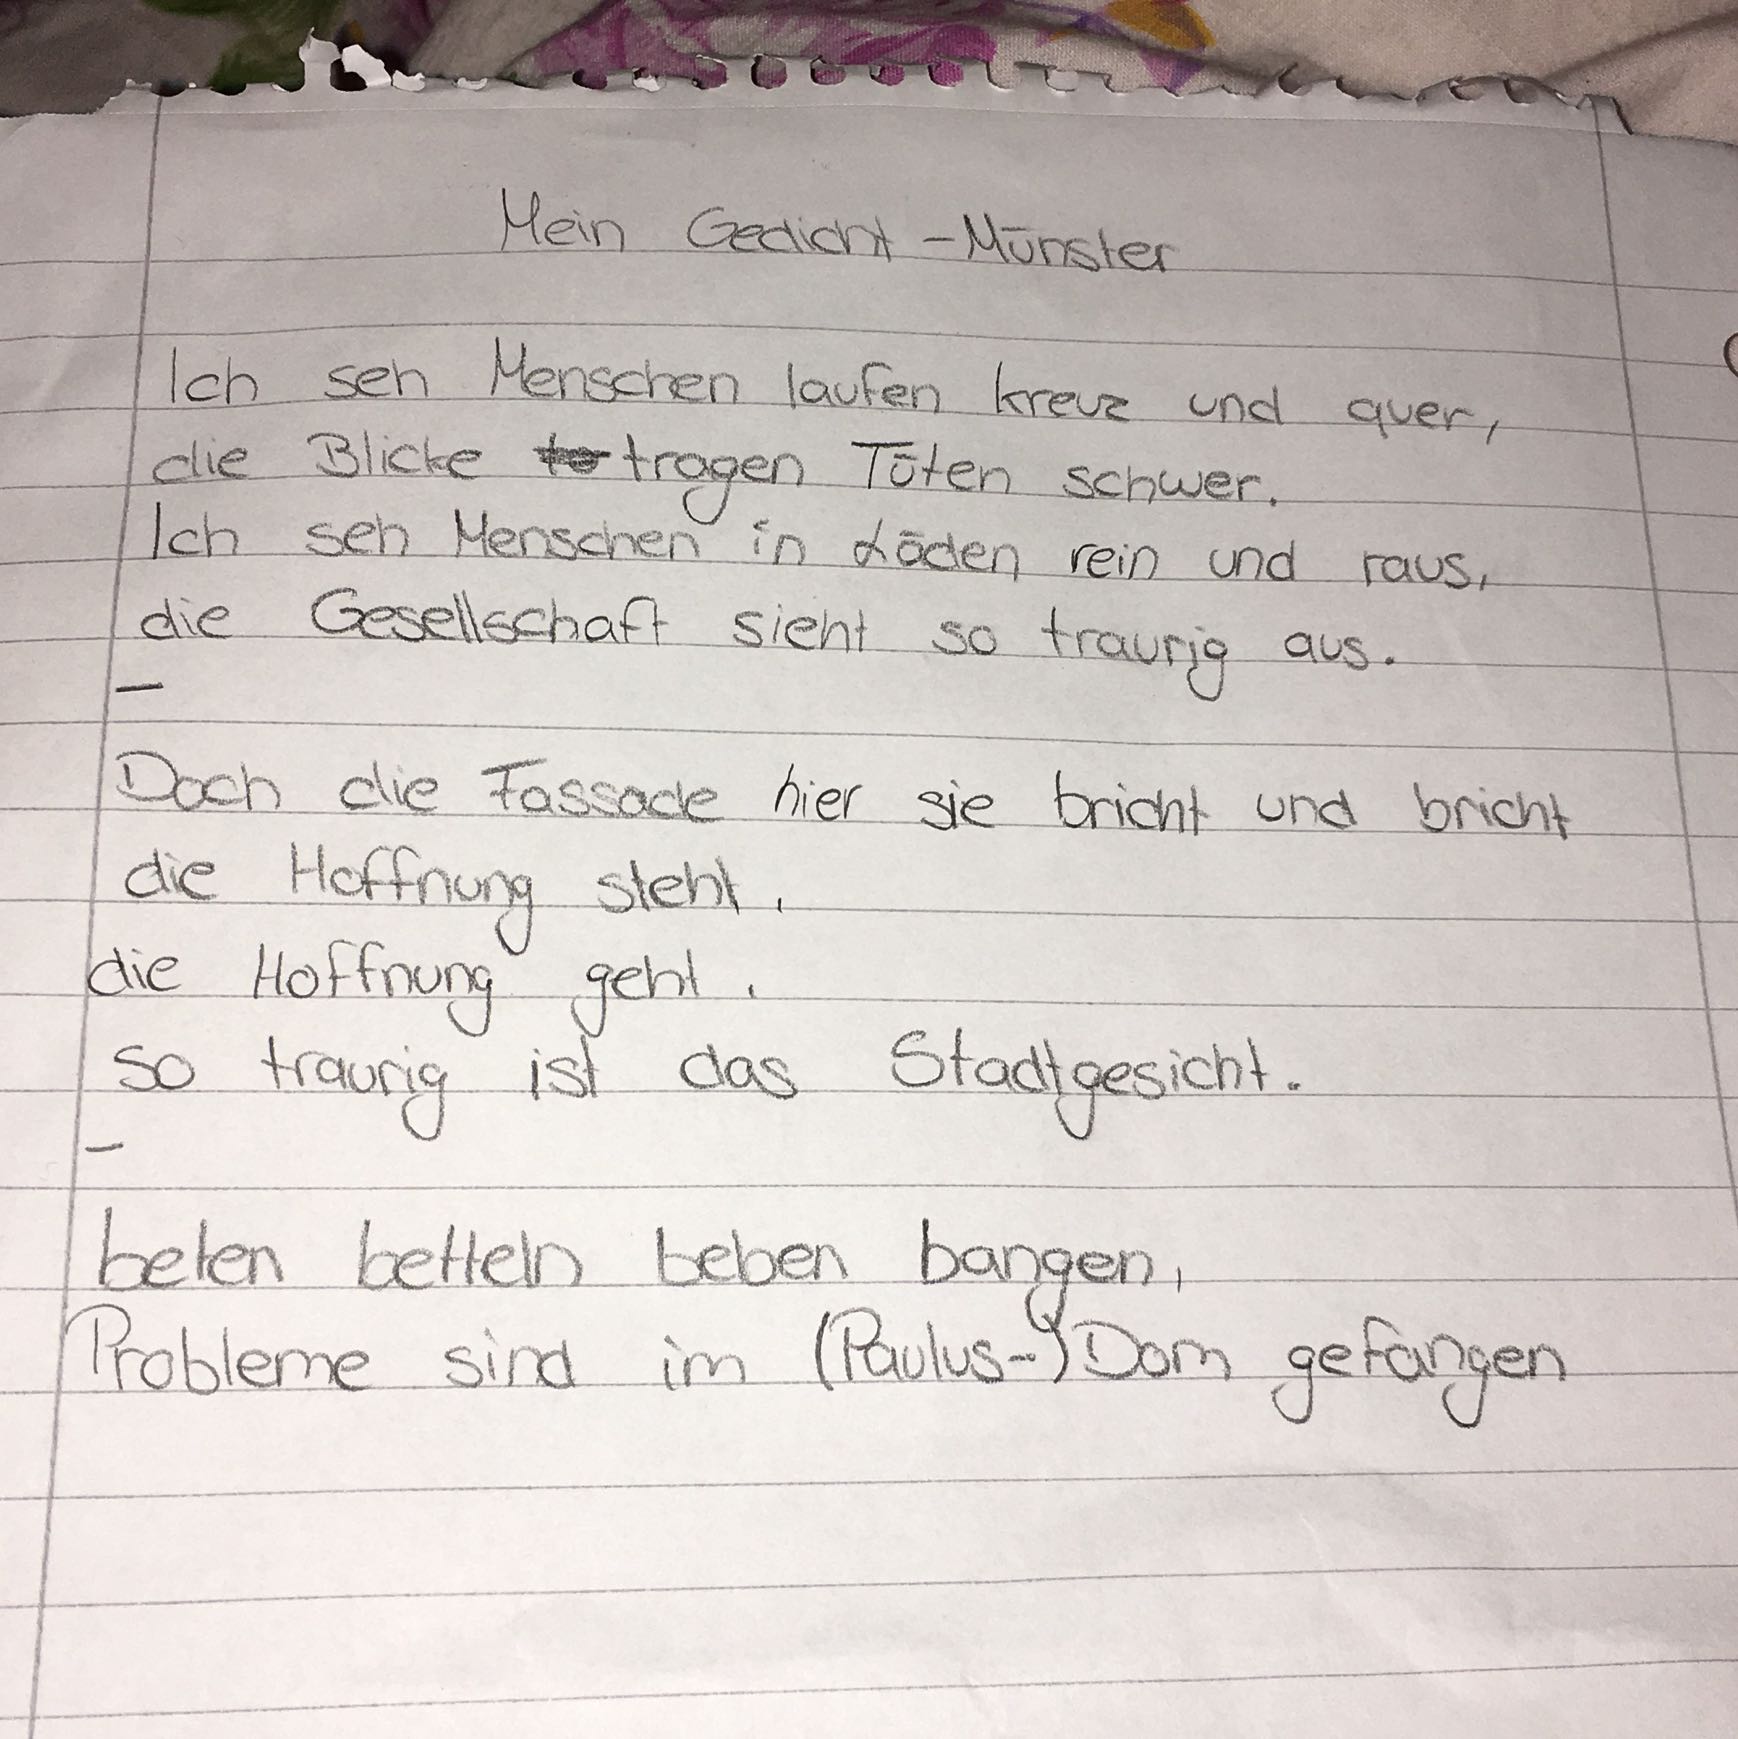 Mein Gedicht - Münster
Ich seh Menschen laufen kreuz und quer,
die Blicke tragen Tüten schwer.
Ich seh Menschen in Läden rein und raus,
die Gesellschaft sieht so traurig aus.
–
Doch die Fassade hier sie bricht und bricht
die Hoffnung steht,
die Hoffnung geht,
so traurig ist das Stadtgesicht.
–
beten betteln beben bangen,
Probleme sind im (Paulus-)Dom gefangen